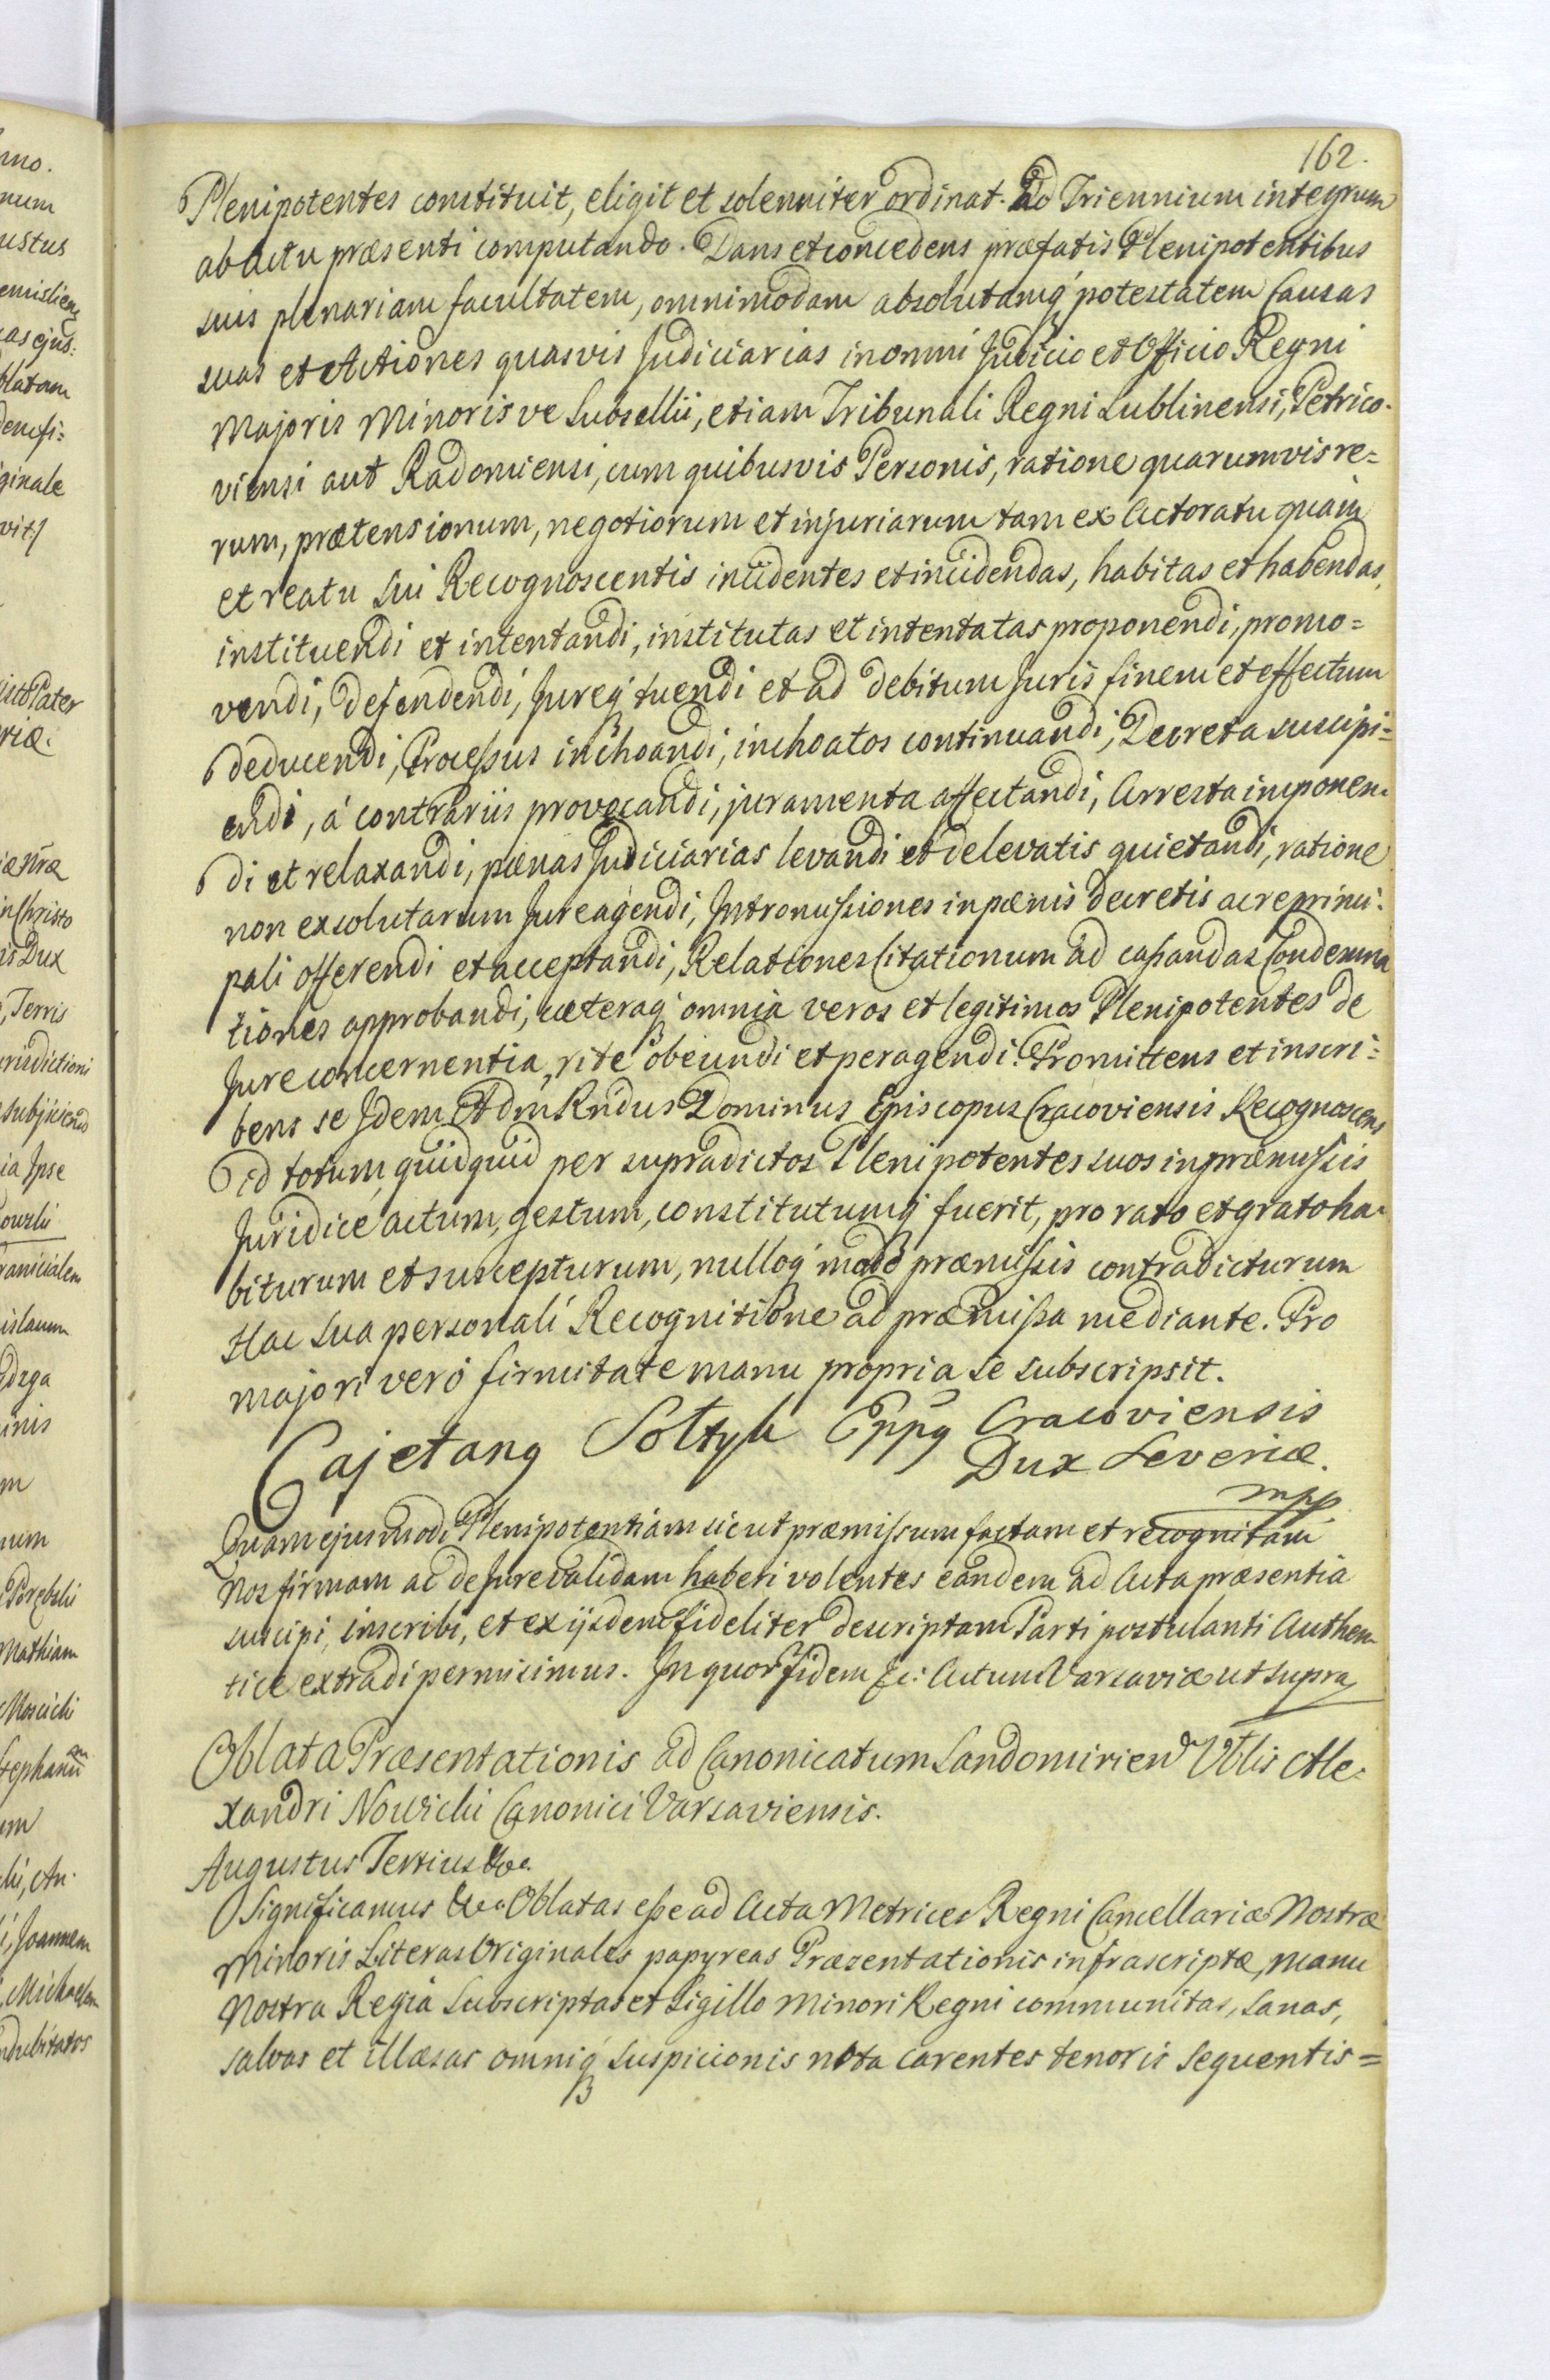 162.
Plenipotentes constituit, eligit et solenniter ordinat. Ad Triennium integrum
ab actu præsenti computando. Dans et concedens præfatis Plenipotentibus
suis plenariam facultatem, omnimodam absolutamq́ potestatem Causas
suas et Actiones quasvis Judiciarias in omni Judicio et Officio Regni
Majoris Minorisve Subsellii, etiam Tribunali Regni Lublinensi, Petrico-
viensi aut Radomiensi, cum quibusvis Personis, ratione quarumvis re=
rum, prætensionum, negotiorum et injuriarum tam ex Actoratu quam
et reatu sui Recognoscentis incidentes et incidendas, habitas et habendas,
instituendi et intentandi, institutas et intentatas proponendi, promo=
vendi, defendendi, Jureq́ tuendi et ad debitum Juris finem et effectum
deducendi, Processus inchoandi, inchoatos continuandi, Decreta suscipi=
endi, á contrariis provocandi, juramenta affectandi, Arresta imponen-
di et relaxandi, pœnas Judiciarias levandi et de levatis quietandi, ratione
non exsolutarum Jure agendi, Intromissiones in pœnis decretis ac re princi-
pali offerendi et acceptandi, Relationes Citationum ad cassandas Condemna
tiones approbandi, cæteraq́ omnia veros et legitimos Plenipotentes de
Jure concernentia, rite obeundi et peragendi. Promittens et inscri=
bens se Idem Adm Rndus Dominus Episcopus Cracoviensis Recognoscens
id totum, quidquid per supradictos Plenipotentes suos in præmissis
Juridice actum, gestum, constitutumq́ fuerit, pro rato et grato ha-
biturum et suscepturum, nulloq́ modo præmissis contradicturum
Hac sua personali Recognitione ad præmissa mediante. Pro
majori veró firmitate manu propria se subscripsit.
Cajetang Sołtyk Eppg Cracoviensis
Dux Severiæ.
mpp
Quam ejusmodi Plenipotentiam sicut præmissum factam et recognitam
Nos firmam ac de Jure validam haberi volentes eandem ad Acta præsentia
suscipi, inscribi, et ex ijsdem fideliter descriptam Parti postulanti Authen
tice extradi permisimus. In quor fidem &c: Actum Varsaviæ ut supra
Oblata Præsentationis ad Canonicatum Sandomirien Vblis Ale-
xandri Nowicki Canonici Varsaviensis.
Augustus Tertius &c.
Significamus &c. Oblatas esse ad Acta Metrices Regni Cancellariæ Nostræ
Minoris Literas Originales papyreas Præsentationis infrascriptæ, Manu
Nostra Regia Subscriptas et Sigillo Minori Regni communitas, Sanas,
salvas et illæsas omniq́ suspicionis nota carentes tenoris sequentis=